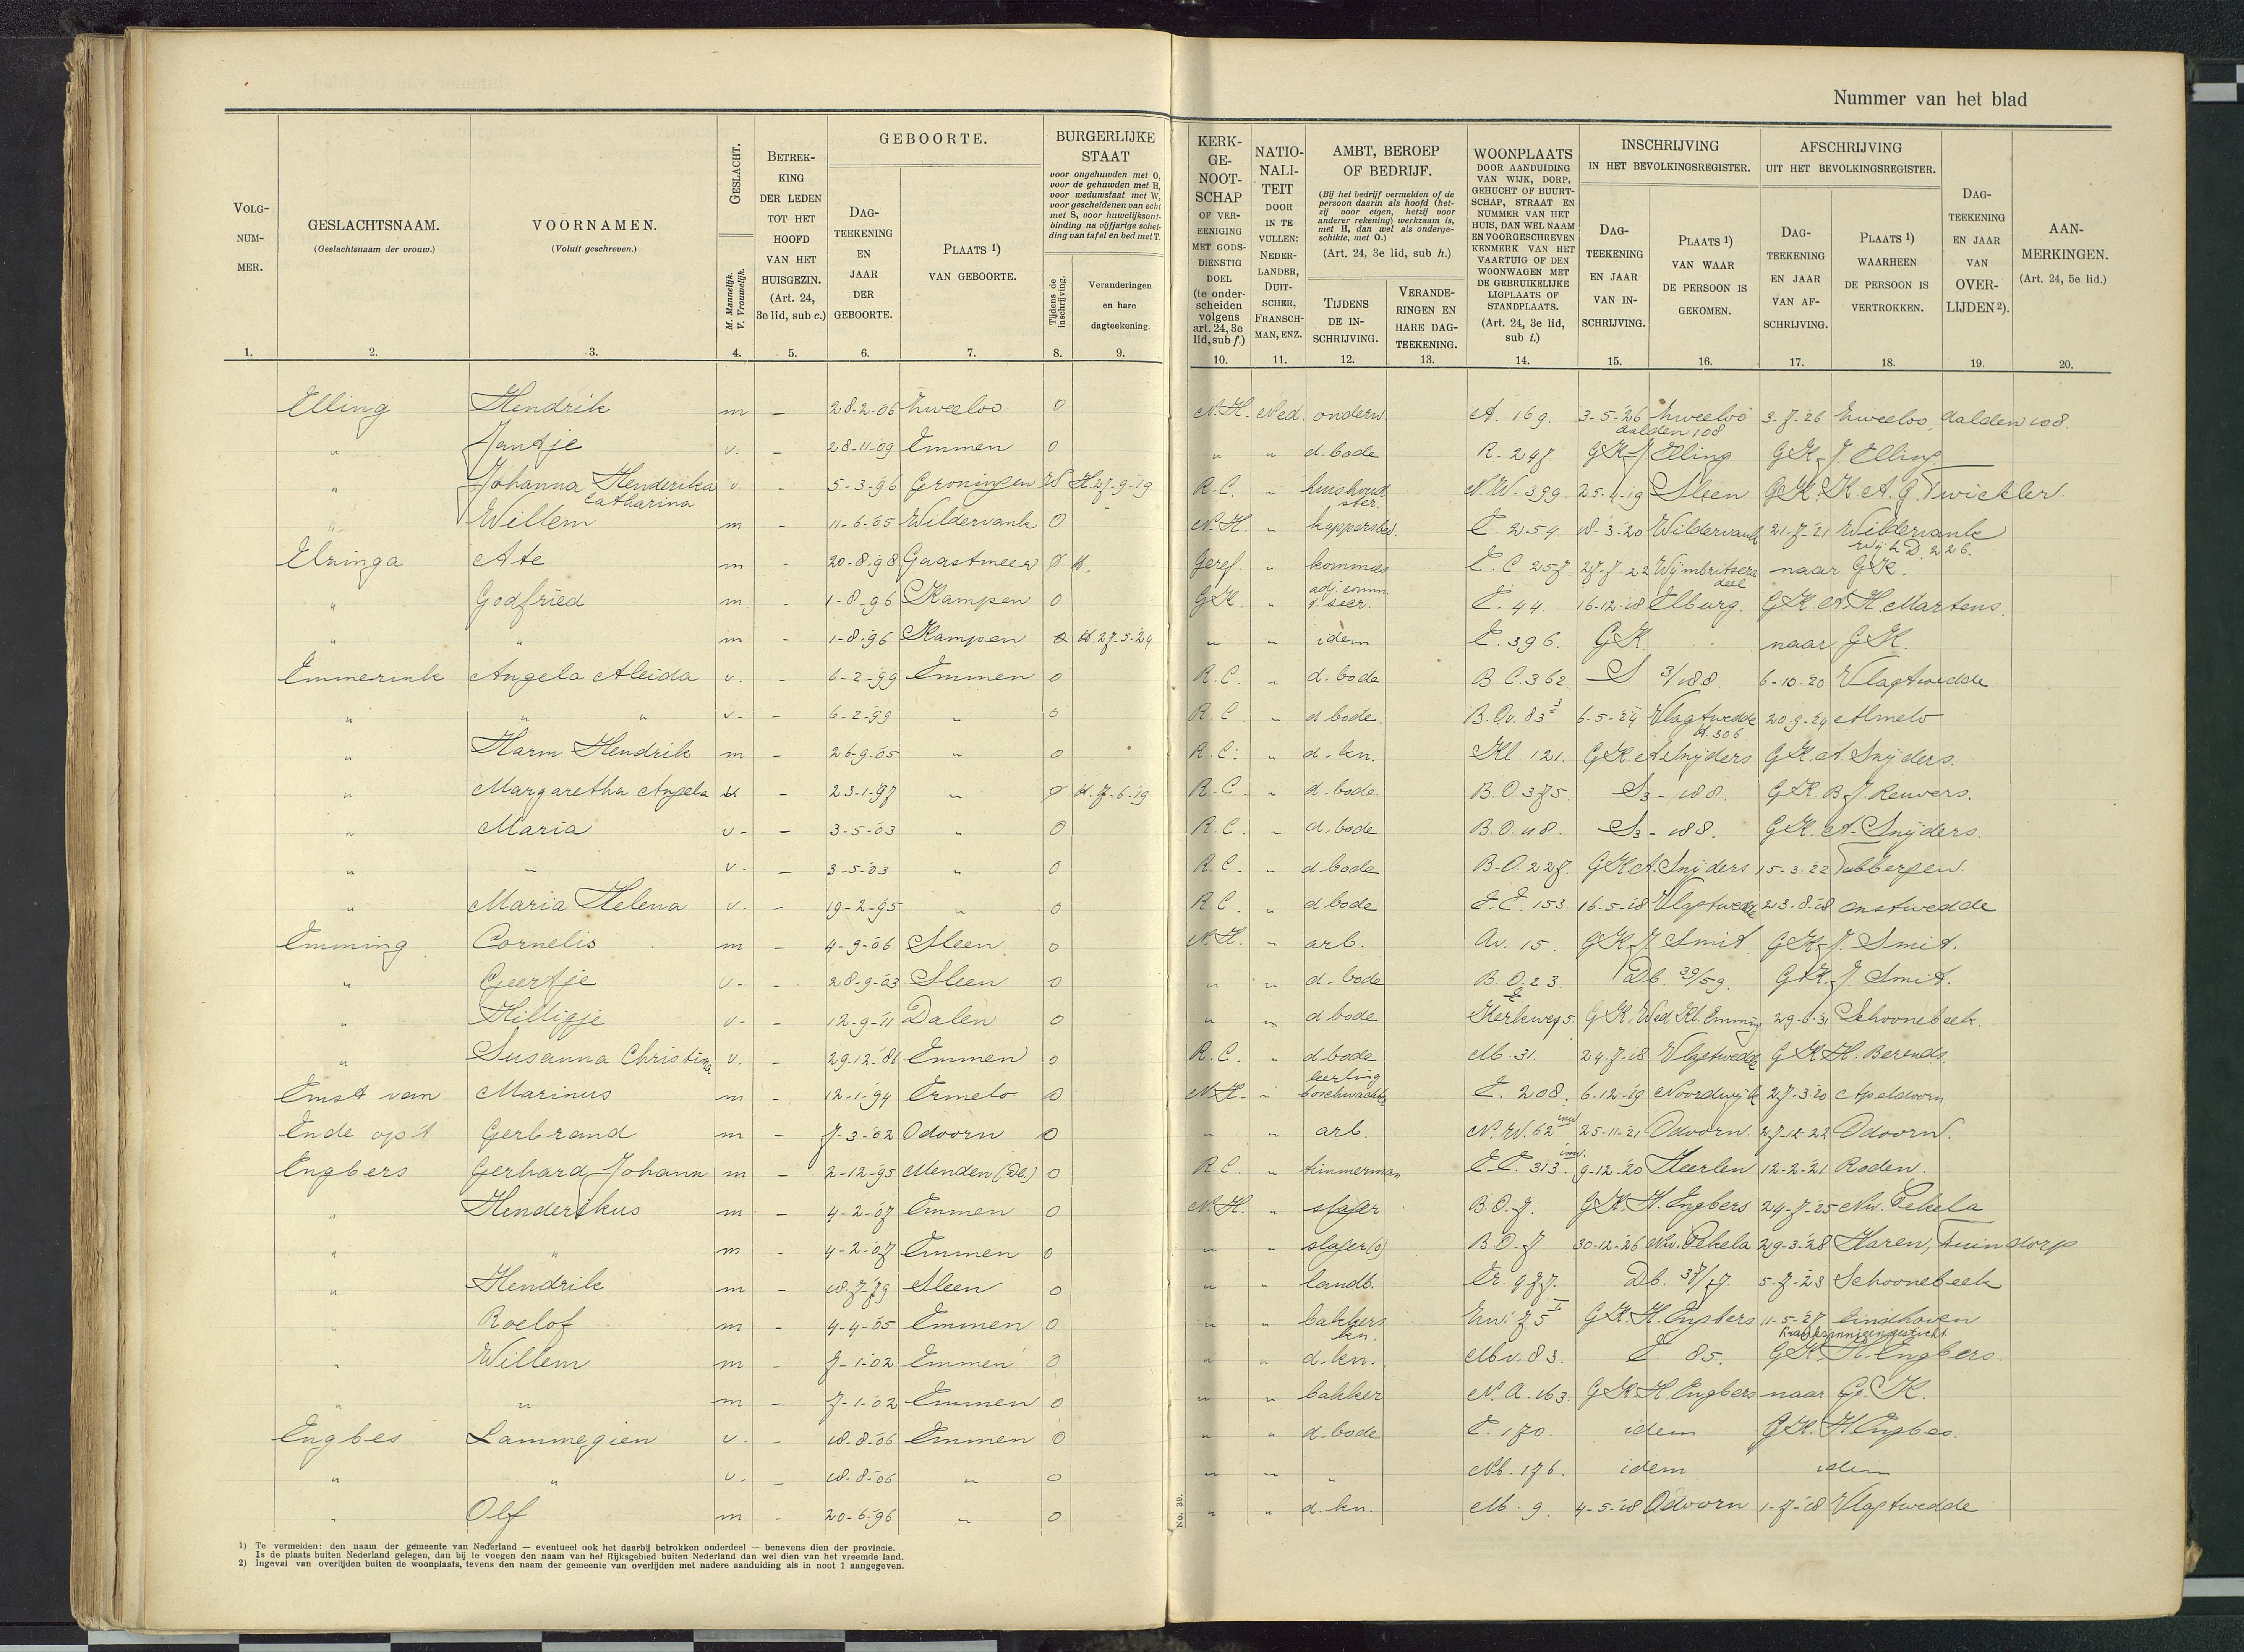 Nummer van het blad
VOLG-NUM-MER.
GESLACHTSNAAM. (Geslachtsnaam der vrouw.)
VOORNAMEN. (Voluit geschreven.)
GESLACHT. M. Mannelijk. V. Vrouwelijk.
BETREK-KING DER LEDEN TOT HET HOOFD VAN HET HUISGEZIN. (Art. 24, 3e lid, sub c.)
GEBOORTE.
DAG-TEEKENING EN JAAR DER GEBOORTE.
PLAATS 1) VAN GEBOORTE.
BURGERLIJKE STAAT
voor ongehuwden met O, voor de gehuwden met H, voor weduwstaat met W, voor gescheidenen van echt met S, voor huwelijksont-binding na vijfjarige schei-ding van tafel en bed met T.
Tijdens de inschrijving.
Veranderingen en hare dagteekening.
KERK-GE-NOOT-SCHAP OF VER-EENIGING MET GODS-DIENSTIG DOEL (te onder-scheiden volgens art. 24, 3e lid, sub f.)
NATIO-NALI-TEIT DOOR IN TE VULLEN: NEDER-LANDER, DUIT-SCHER, FRANSCH-MAN, ENZ.
AMBT, BEROEP OF BEDRIJF.
(Bij het bedrijf vermelden of de persoon daarin als hoofd (het-zij voor eigen, hetzij voor anderer rekening) werkzaam is, met H, dan wel als onderge-schikte, met O.)
(Art. 24, 3e lid, sub h.)
TIJDENS DE IN-SCHRIJVING.
VERANDE-RINGEN EN HARE DAG-TEEKENING.
WOONPLAATS DOOR AANDUIDING VAN WIJK, DORP, GEHUCHT OF BUURT-SCHAP, STRAAT EN NUMMER VAN HET HUIS, DAN WEL NAAM EN VOORGESCHREVEN KENMERK VAN HET VAARTUIG OF DEN WOONWAGEN MET DE GEBRUIKELIJKE LIGPLAATS OF STANDPLAATS. (Art. 24, 3e lid, sub i.)
INSCHRIJVING IN HET BEVOLKINGSREGISTER.
DAG-TEEKENING EN JAAR VAN IN-SCHRIJVING.
PLAATS 1) VAN WAAR DE PERSOON IS GEKOMEN.
AFSCHRIJVING UIT HET BEVOLKINGSREGISTER.
DAG-TEEKENING EN JAAR VAN AF-SCHRIJVING.
PLAATS 1) WAARHEEN DE PERSOON IS VERTROKKEN.
DAG-TEEKENING EN JAAR VAN OVER-LIJDEN 2).
AAN-MERKINGEN. (Art. 24, 5e lid.)
1. 2. 3. 4. 5. 6. 7. 8. 9. 10. 11. 12. 13. 14. 15. 16. 17. 18. 19. 20.
Elling Hendrik m - 28-2-'06 Zweeloo O N.H. Ned. onderw A. 169. 3-5-'26 Zweeloo Aalden 108 3-7-'26 Zweeloo, Aalden 108.
" Jantje v. - 28-11-'09 Emmen O " " d.bode R. 247 GK J Elling GK. J. Elling
" Johanna Henderika Catharina v. - 5-3-'96 Groningen H 27-9-'19 R.C. " huishoudster. N.W. 399 25-4-'19 Sleen GK. K.A.G. Twickler.
" Willem m - 11-6-'05 Wildervank O N.H. " kappersbed. E. 254 18-3-'20 Wildervank 21-7-'21 Wildervank wijk D. 226.
Elzinga Ate m - 20-8-'98 Gaastmeer O H. Geref. " kommies E.C. 257 27-7-'22 Wijmbritseradeel naar GK.
" Godfried m - 1-8-'96 Kampen O GK. " adj. comm. E. 44. 16-12-'18 Elburg. GK. A.H. Martens.
" " m - 1-8-'96 Kampen O H. 27-5-'24 " " idem E. 396. GK naar GK.
Emmerink Angela Aleida v. - 6-2-'99 Emmen O R.C. " d.bode B.C. 362 S 3/188 6-10-'20 Vlagtwedde
" " " v. - 6-2-'99 " O R.C. " d bode. B.Ov. 83 6-5-'24 Vlagtwedde H.306 20-9-'24 Almelo
" Harm Hendrik m - 26-9-'05 " O R.C. " d.kn. Kl 121. GK. A. Snijders GK. A. Snijders.
" Margaretha Angela v - 23-1-'97 " O H. 7-6-'19 R.C. " d.bode. B.O. 375. S3-188. GK. B.J. Reuvers.
" Maria v. - 3-5-'03 " O R.C. " d.bode B.O. 118. S3-188. GK. A. Snijders.
" " v. - 3-5-'03 " O R.C. " d bode B.O. 227. GK A. Snijders 15-3-'22 Tubbergen.
" Maria Helena v. - 19-2-'95 " O R.C. " d bode E.E. 153. 16-5-'18 Vlagtwedde 23-8-'18 Onstwedde
Emming Cornelis m - 4-9-'06 Sleen O N.H. " arb. Av. 15. GK. J Smit GK. J. Smit.
" Geertje v. - 28-9-'03 Sleen O " " d-bode B.O. 23. Db. 39/59. GK. J. Smit.
" Hilligje v. - 12-9-'11 Dalen O " " d bode Kerkweg 5. GK. Wed. Kl. Emming 29-6-'31 Schoonebeek.
" Susanna Christina v. - 29-12-'81 Emmen O R.C. " d.bode M. 31. 24-7-'18 Vlagtwedde GK H. Berends.
Emst van Marinus m - 12-1-'94 Ermelo O N.H. " leerling boschwachter E. 208. 6-12-'19 Noordwijk 27-3-'20 Apeldoorn
Ende op't Gerbrand m - 7-3-'02 Odoorn O " " arb. N.W. 62 inw 25-11-'21 Odoorn 27-12-'22 Odoorn.
Engbers Gerhard Johann m - 2-12-'95 Menden (Dl.) O R.C. " timmerman E.E. 313. inw. 9-12-'20 Heerlen 12-2-'21 Roden.
" Henderikus m - 4-2-'07 Emmen O N.H. " slager B.O. 7. GK. H. Engbers 24-7-'25 Nw. Pekela
" " m - 4-2-'07 Emmen O " " slager (o) B.O. 7 30-12-'26 Nw. Pekela 29-3-'28 Haren, Tuindorp
" Hendrik m - 18-7-'79 Sleen O " " landb. Er. 977. Db. 5-7-'23 Schoonebeek
" Roelof m - 4-4-'05 Emmen O " " bakkers kn. 75 GK. H. Engbers 11-5-'27 Eindhoven Krankzinnigengesticht
" Willem m - 7-1-'02 Emmen O " " d.kn. Mv. 83. E. 85. GK. H. Engbers.
" " m - 7-1-'02 Emmen O " " bakker N.A. 163. GK. H. Engbers naar G.K.
Engbes Lammegien v. - 18-8-'06 Emmen O " " d-bode E. 170. idem GK. H Engbes.
" " v. - 18-8-'06 " O " " " 176. idem idem
" Olf m - 20-6-'96 " O " " d.kn. M. 9. 4-5-'18 Odoorn 1-7-'18 Vlagtwedde
No. 39.
1) Te vermelden: den naam der gemeente van Nederland — eventueel ook het daarbij betrokken onderdeel — benevens dien der provincie.
Is de plaats buiten Nederland gelegen, dan bij te voegen den naam van het Rijksgebied buiten Nederland dan wel dien van het vreemde land.
2) Ingeval van overlijden buiten de woonplaats, tevens den naam der gemeente van overlijden met nadere aanduiding als in noot 1 aangegeven.